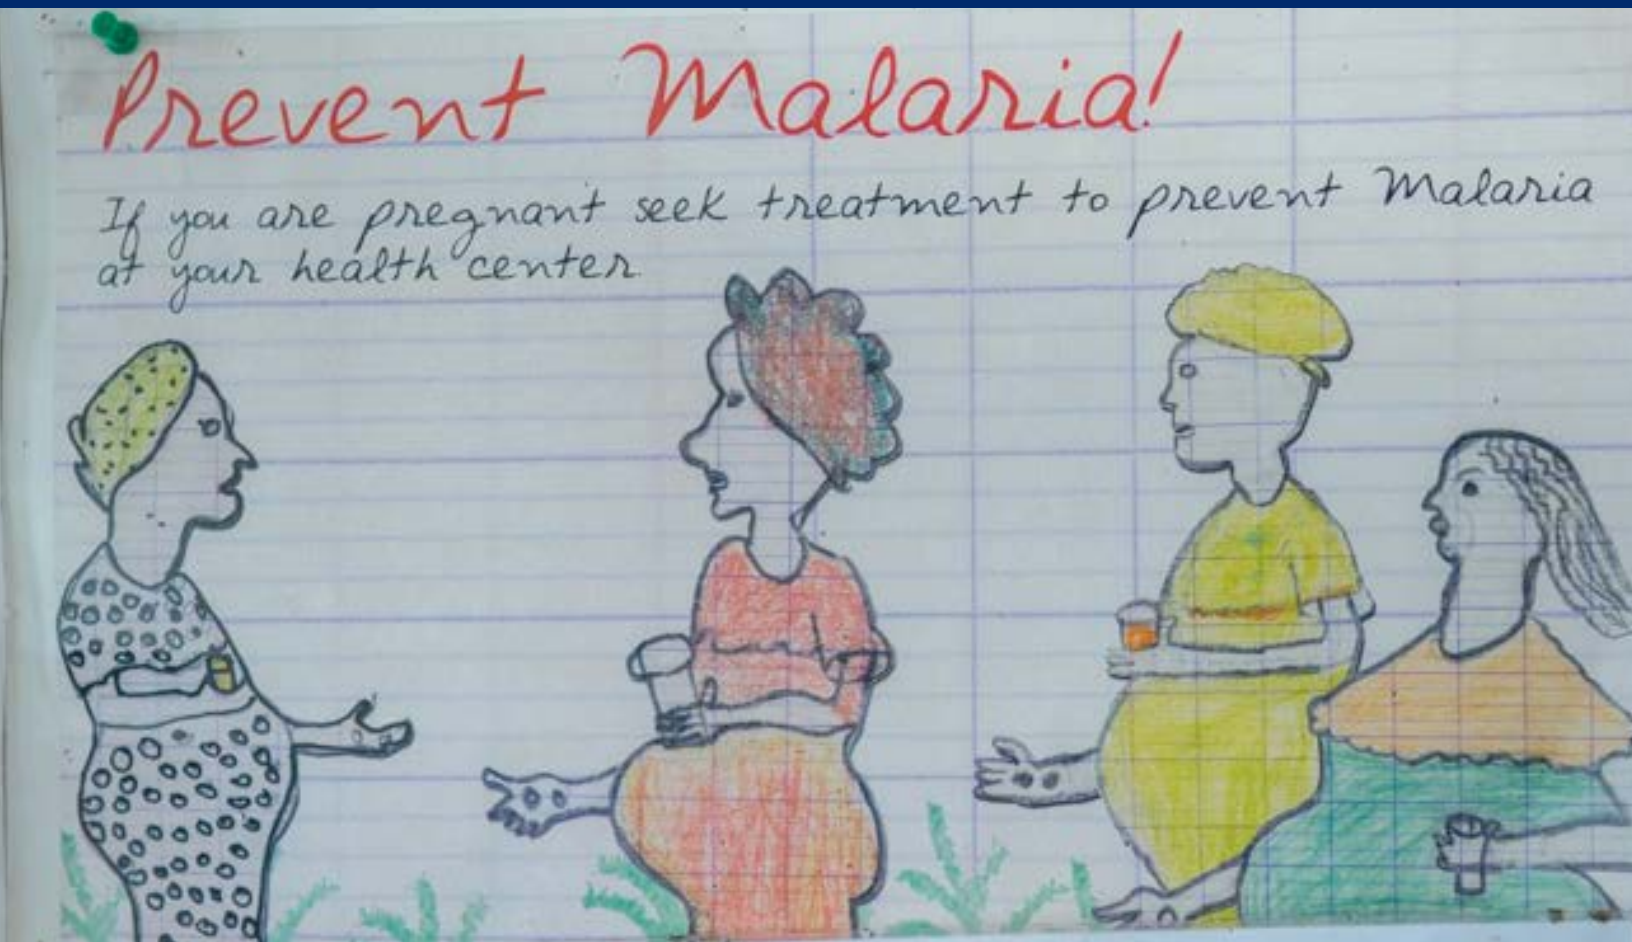 Prevent Malaria!
If you are pregnant seek treatment to prevent Malaria
at your health center